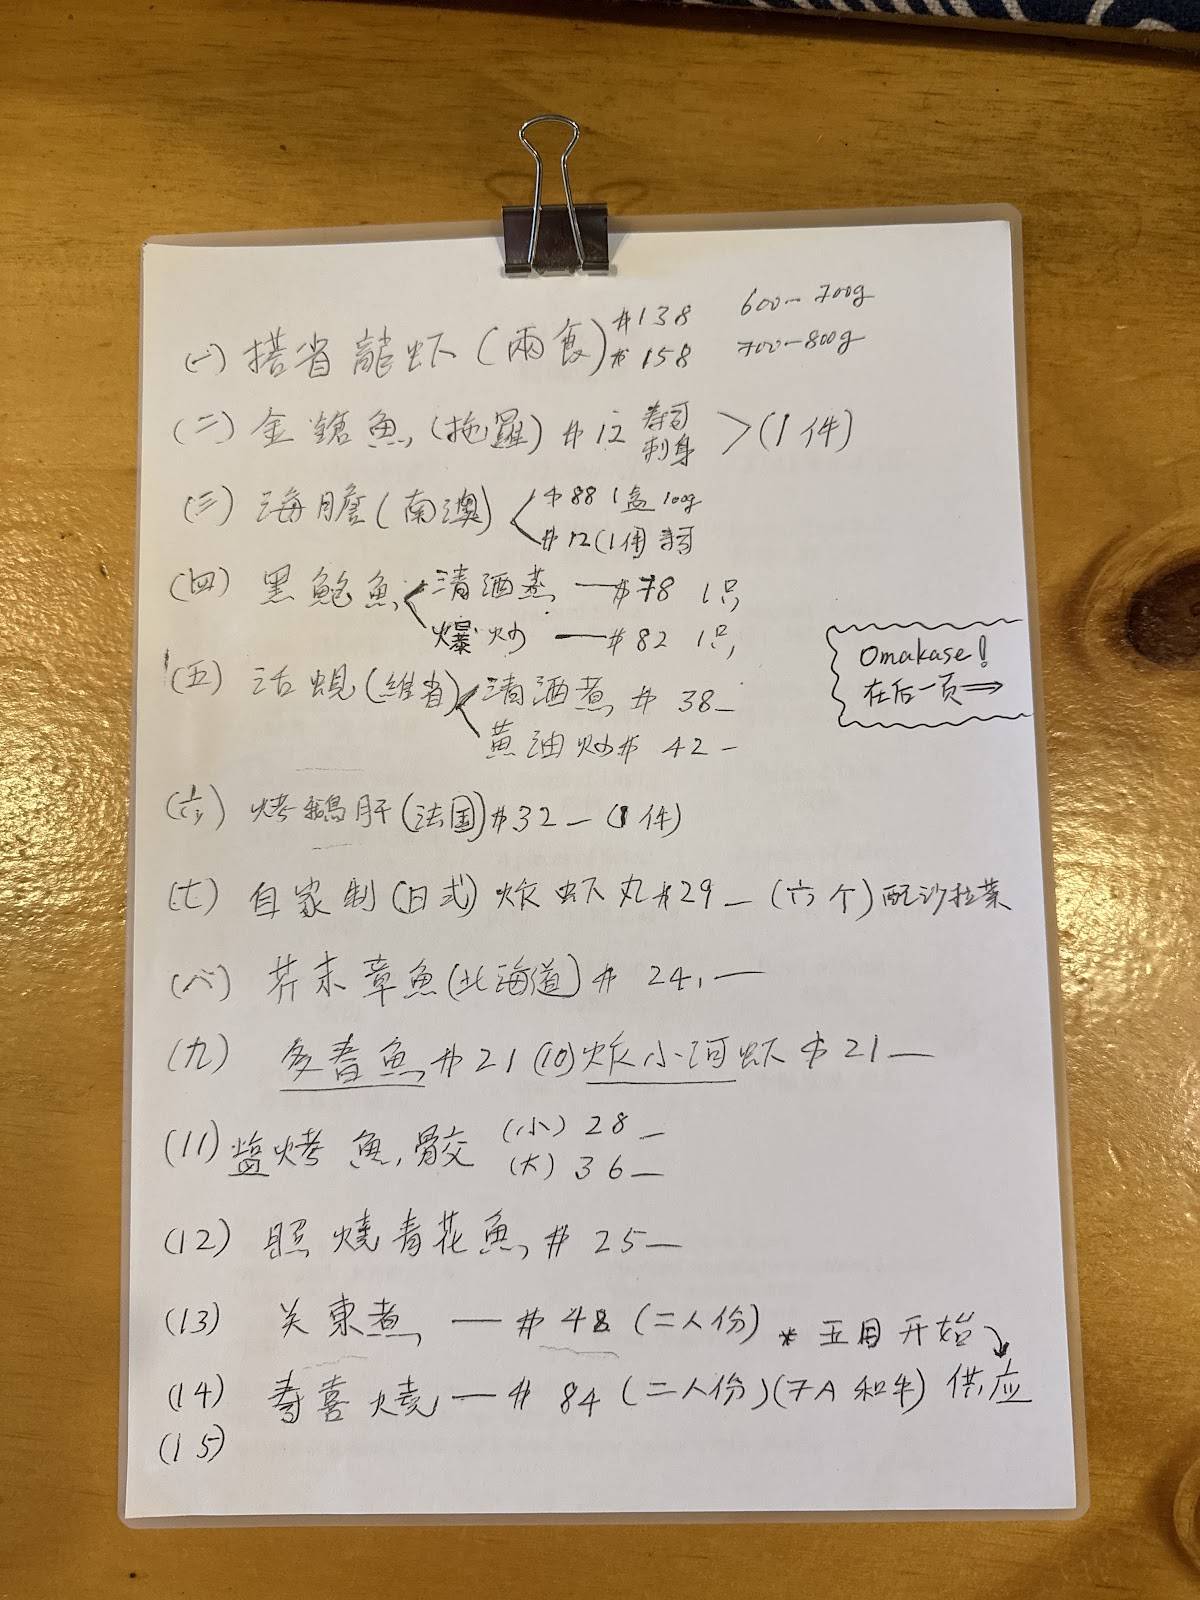 (一) 搭省龍虾 (兩食) $138 600-700g
$158 700-800g
(二) 金鎗魚 (拖羅) $12 寿司 刺身 >(1件)
(三) 海膽 (南澳) $88 1盒 100g
$12 (1件) 寿司
(四) 黑鲍魚 清酒蒸 — $78 1只
爆炒 — $82 1只
(五) 活蜆 (維省) 清酒煮 $38—
黄油炒 $42—
Omakase!
在后一页→
(六) 烤鵝肝 (法国) $32— (1件)
(七) 自家制 (日式) 炸虾丸 $29— (六个) 配沙拉菜
(八) 芥末章魚 (北海道) $24.—
(九) 多春魚 $21 (10) 炸小河虾 $21—
(11) 盐烤魚鲛 (小) 28—
(大) 36—
(12) 照燒青花魚 $25—
(13) 关東煮 — $48 (二人份) * 五月开始
(14) 寿喜燒 — $84 (二人份) (7A 和牛) 供应
(15)